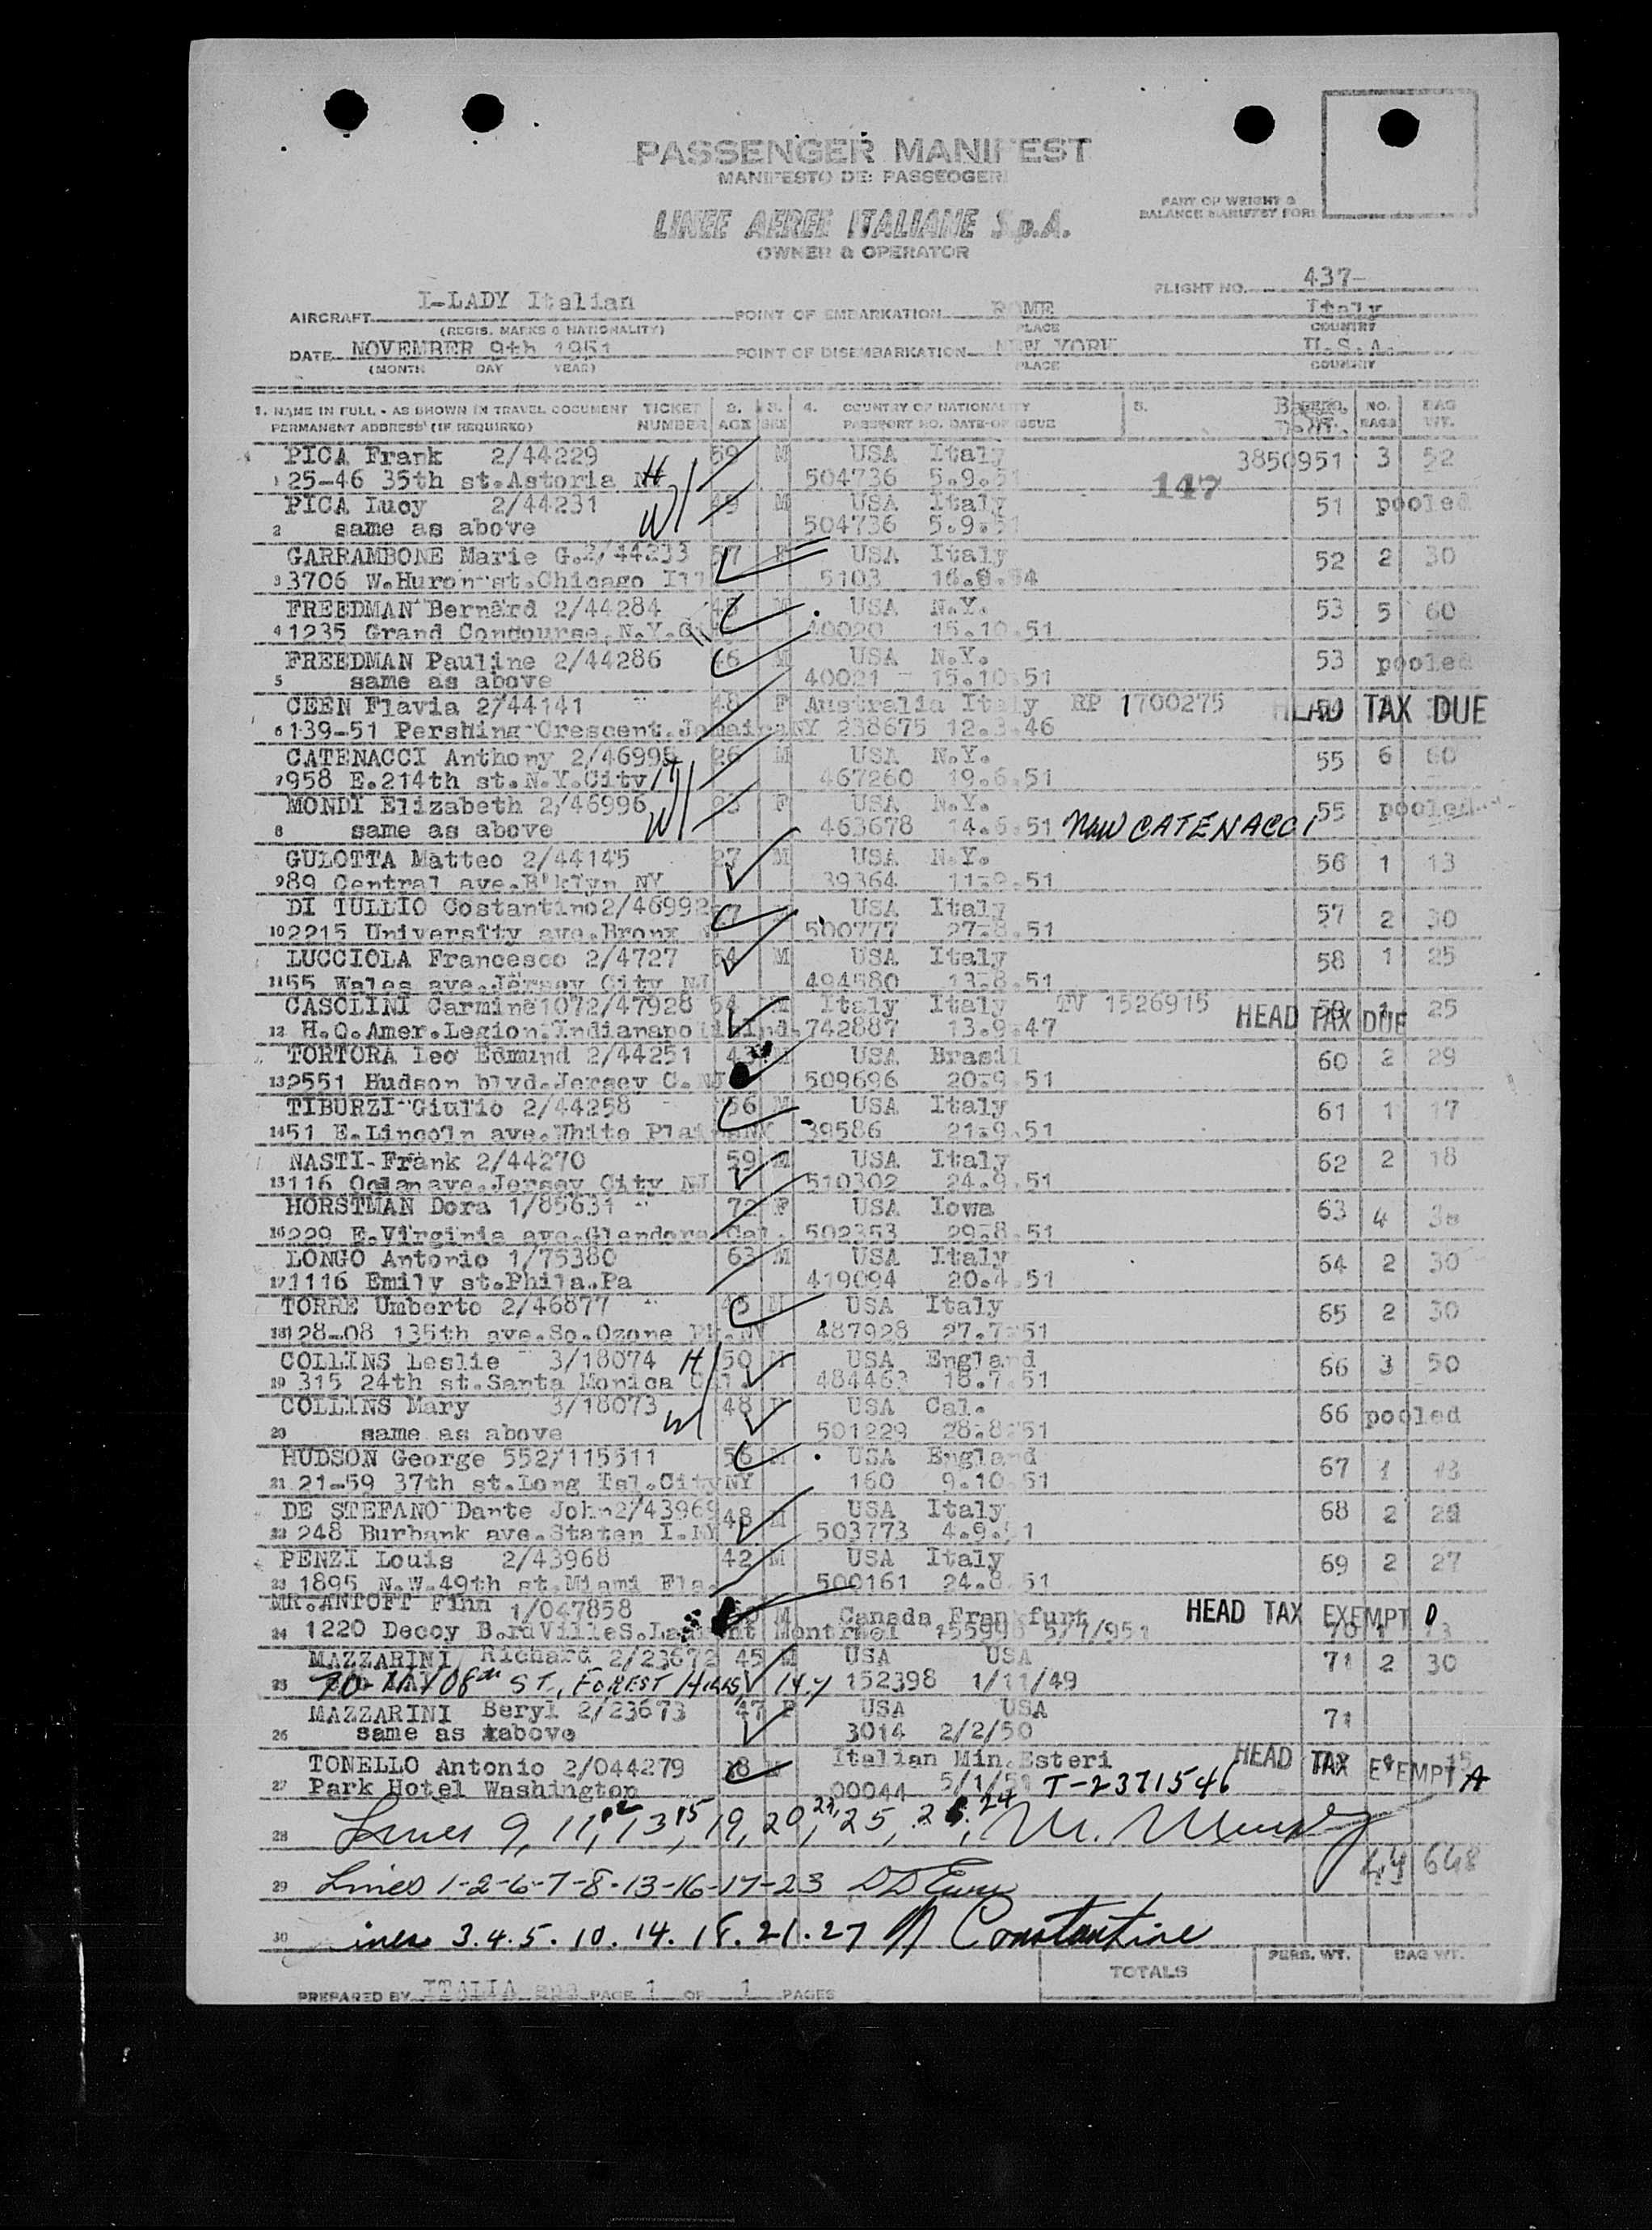 PASSENGER MANIFEST
MANIFESTO DEI PASSEGGERI
PART OF WEIGHT &
BALANCE MANIFEST FORM
LINEE AEREE ITALIANE S.p.A.
OWNER & OPERATOR
FLIGHT NO. 437-
AIRCRAFT I-LADY Italian POINT OF EMBARKATION ROME Italy
(REGIS. MARKS & NATIONALITY) PLACE COUNTRY
DATE NOVEMBER 9th 1951 POINT OF DISEMBARKATION NEW YORK U.S.A.
(MONTH DAY YEAR) PLACE COUNTRY
1. NAME IN FULL - AS SHOWN IN TRAVEL DOCUMENT TICKET 2. 3. 4. COUNTRY OF NATIONALITY 5. NO. BAG
PERMANENT ADDRESS (IF REQUIRED) NUMBER AGE SEX PASSPORT NO. DATE OF ISSUE BAGS WT.
PICA Frank 2/44229 59 M USA Italy 3850951 3 52
1 25-46 35th st.Astoria H 504736 5.9.51 147
PICA Lucy 2/44231 49 M USA Italy 51 pooled
2 same as above W 504736 5.9.51
GARRAMBONE Marie G.2/44233 57 F USA Italy 52 2 30
3 3706 W.Huron st.Chicago Ill 5103
FREEDMAN Bernard 2/44284 M USA N.Y. 53 5 60
4 1235 Grand Concourse N.Y. 40020 15.10.51
FREEDMAN Pauline 2/44286 46 M USA N.Y. 53 pooled
5 same as above 40021 15.10.51
CEEN Flavia 2/44141 48 F Australia Italy RP 1700275 HEAD TAX DUE
6 139-51 Pershing Crescent.Jamaica NY 238675 12.3.46
CATENACCI Anthony 2/46995 26 M USA N.Y. 55 6 60
7 958 E.214th st.N.Y.City H 467260 19.6.51
MONDI Elizabeth 2/46996 23 F USA N.Y. 55 pooled
8 same as above W 463678 14.6.51 now CATENACCI
GULOTTA Matteo 2/44145 27 M USA N.Y. 56 1 13
9 89 Central ave.B'klyn NY 39364 11.9.51
DI TULLIO Costantino 2/46992 M USA Italy 57 2 30
10 2215 University ave.Bronx 500777 27.8.51
LUCCIOLA Francesco 2/4727 54 M USA Italy 58 1 25
11 55 Wales ave.Jersey City NJ 494580 13.8.51
CASOLINI Carmine1072/47928 54 M Italy Italy TV 1526915 59 1 25
12 H.Q.Amer.Legion.Indianapolis Ind. 742887 13.9.47 HEAD TAX DUE
TORTORA Leo Edmund 2/44251 43 M USA Brasil 60 2 29
13 2551 Hudson blvd.Jersey C.NJ 509696 20.9.51
TIBURZI Giulio 2/44258 56 M USA Italy 61 1 17
14 51 E.Lincoln ave.White Plains NY 39586 21.9.51
NASTI Frank 2/44270 59 M USA Italy 62 2 18
15 116 ave.Jersey City NJ 510302 24.9.51
HORSTMAN Dora 1/85631 72 F USA Iowa 63 4
16 229 E.Virginia ave.Glendora Cal. 502353 29.8.51
LONGO Antonio 1/75380 63 M USA Italy 64 2 30
17 1116 Emily st.Phila.Pa 419094 20.4.51
TORRE Umberto 2/46877 M USA Italy 65 2 30
18 128-08 135th ave.So.Ozone Pk.NY 487928 27.7.51
COLLINS Leslie 3/18074 H 50 M USA England 66 3 50
19 315 24th st.Santa Monica Cal. 484463 18.7.51
COLLINS Mary 3/18073 W 48 USA Cal. 66 pooled
20 same as above 501229 28.8.51
HUDSON George 552/115511 56 M USA England 67 1
21 21-59 37th st.Long Isl.City NY 160 9.10.51
DE STEFANO Dante John2/43969 48 M USA Italy 68 2
22 248 Burbank ave.Staten I.NY 503773 4.9.51
PENZI Louis 2/43968 42 M USA Italy 69 2 27
23 1895 N.W.49th st.Miami Fla. 500161 24.8.51
MR.ANTOFT Finn 1/047858 M Canada Frankfurt HEAD TAX EXEMPT
24 1220 Decoy Montreal 5/7/951 70 1 13
MAZZARINI Richard 2/23672 45 M USA USA 71 2 30
25 ST, FOREST HILLS N.Y 152398 1/11/49
MAZZARINI Beryl 2/23673 47 F USA USA 71
26 same as above 3014 2/2/50
TONELLO Antonio 2/044279 M Italian Min.Esteri HEAD TAX EXEMPT A
27 Park Hotel Washington 00044 5/1/51 T-2371546
28 Lines 9, 11, 12, 13, 15, 19, 20, 22, 25, 26, 24
29 Lines 1-2-6-7-8-13-16-17-23 44 648
30 ines 3.4.5.10.14.18.21.27 Constantine
TOTALS PERS. WT. BAG WT.
PREPARED BY ITALIA spa PAGE 1 OF 1 PAGES